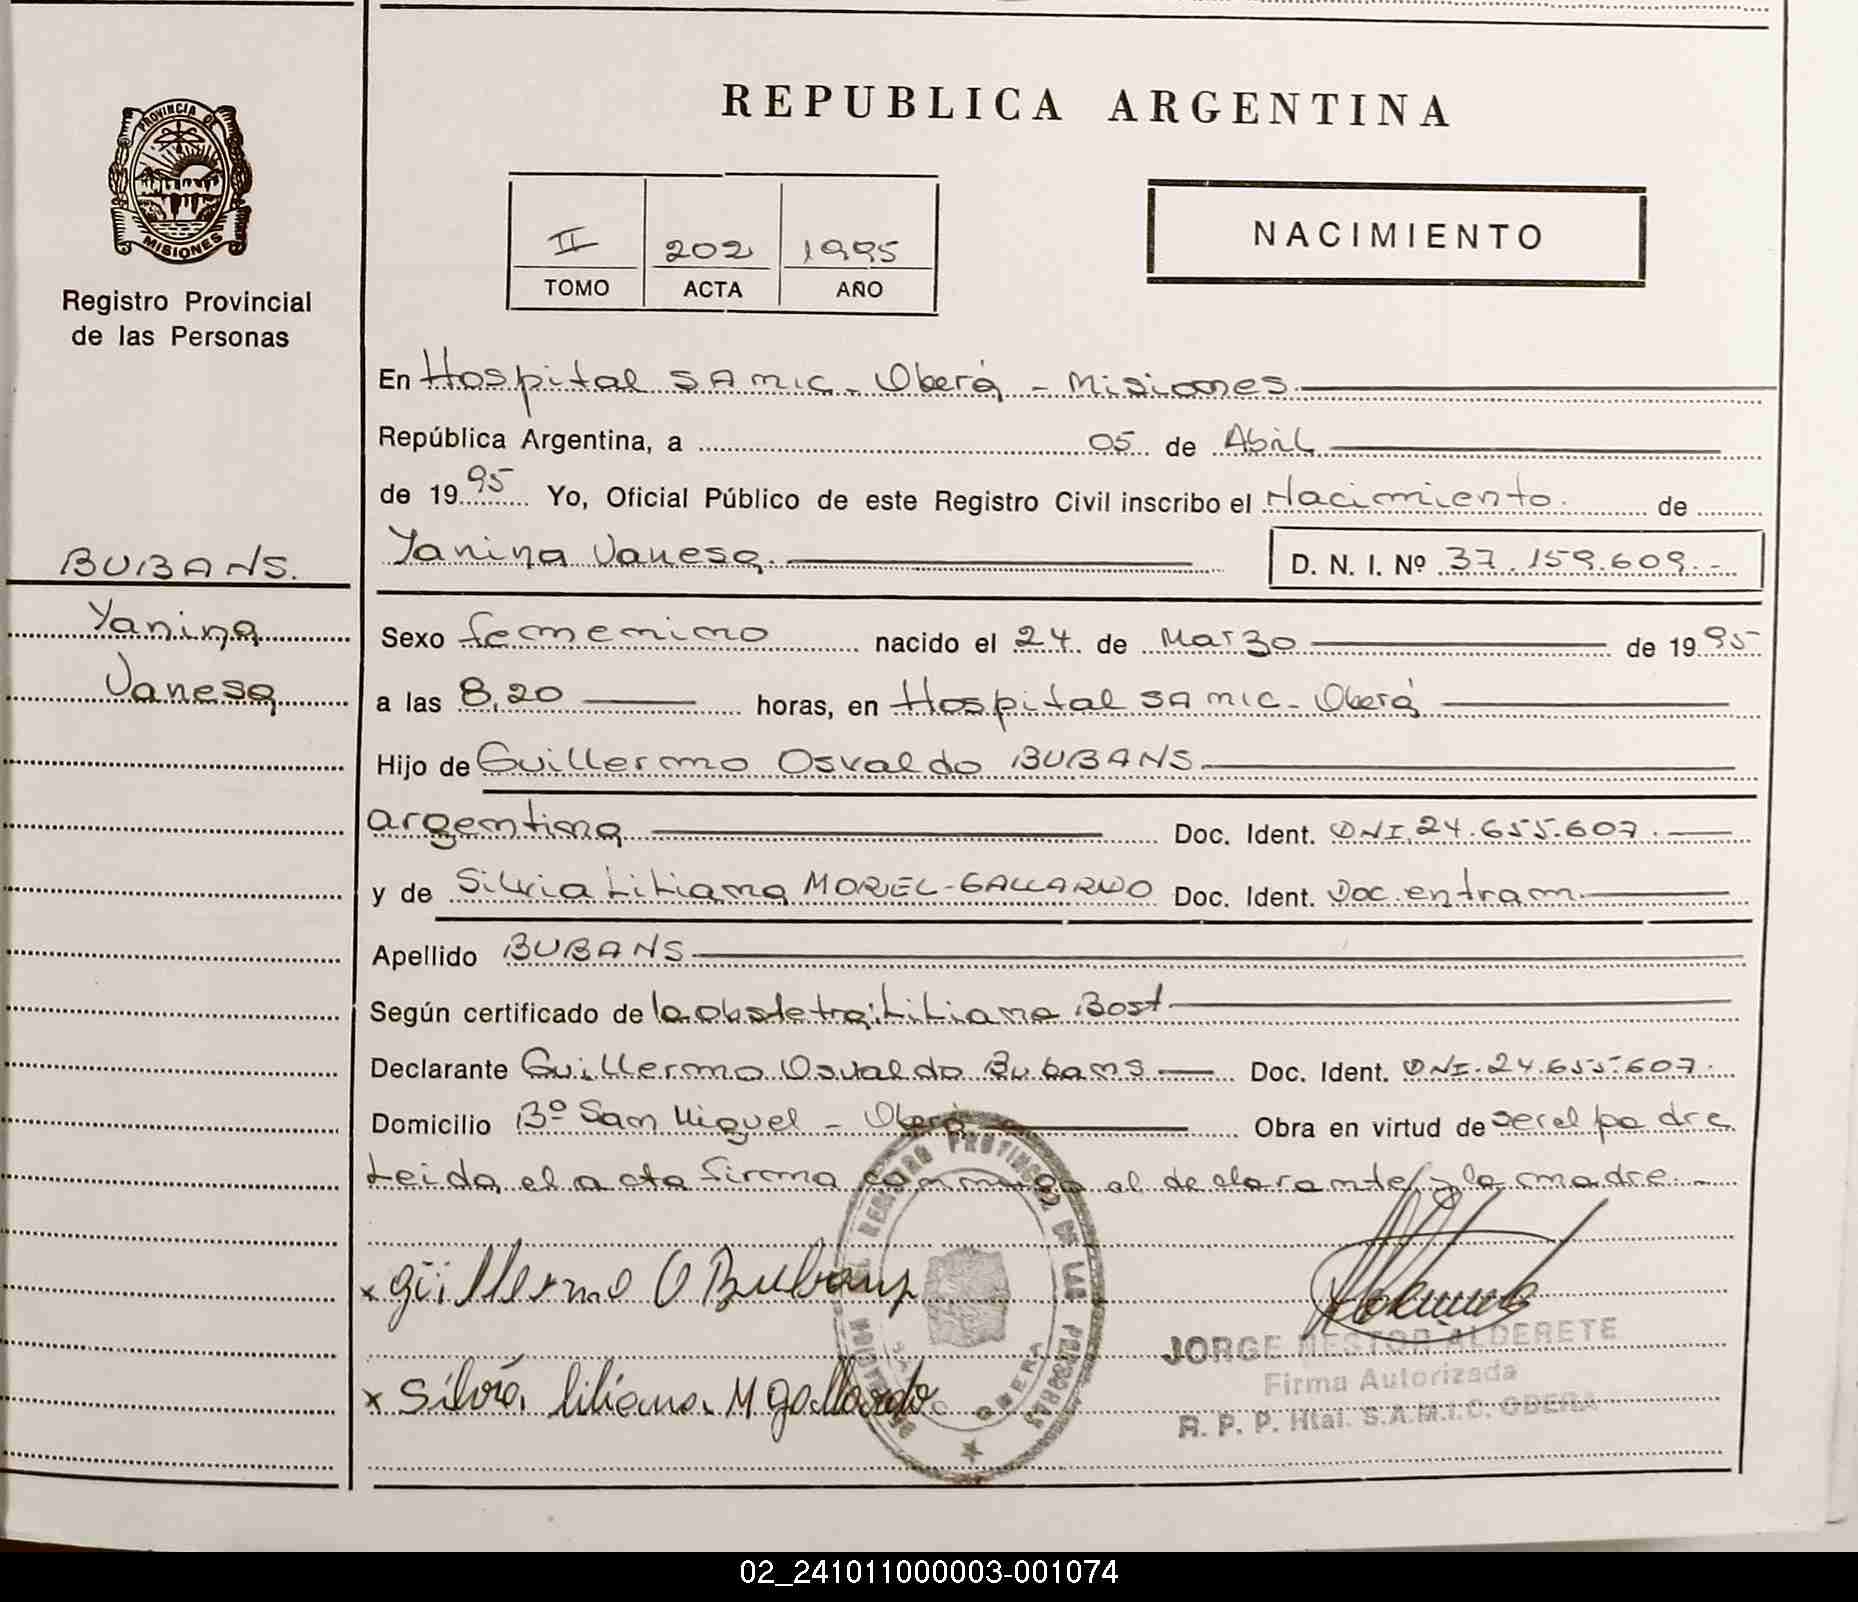 REPUBLICA ARGENTINA
PROVINCIA DE
MISIONES
Registro Provincial
de las Personas
II 202 1995
TOMO ACTA AÑO
NACIMIENTO
En Hospital SAMIC - Oberá - Misiones
República Argentina, a 05 de Abril
de 1995 Yo, Oficial Público de este Registro Civil inscribo el Nacimiento de
Yanina Vanesa D. N. I. Nº 37.159.609.-
BUBANS.
Yanina
Vanesa
Sexo femenino nacido el 24 de Marzo de 1995
a las 8,20 horas, en Hospital SAMIC - Oberá
Hijo de Guillermo Osvaldo BUBANS
argentina Doc. Ident. DNI. 24.655.607.
y de Silvia Liliana MORIEL-GALLARDO Doc. Ident. Doc. en tram.
Apellido BUBANS
Según certificado de la obstetra: Liliana Bost
Declarante Guillermo Osvaldo Bubans Doc. Ident. DNI. 24.655.607.
Domicilio Bº San Miguel - Oberá Obra en virtud de ser el padre
Leida el acta firma conmigo el declarante/ y la madre.-
x guillermo O Bubans
x Silvia liliana M gallardo
REGISTRO PROVINCIAL DE LAS PERSONAS
OBERA
JORGE NESTOR ALDERETE
Firma Autorizada
R. P. P. Htal. S.A.M.I.C. OBERA
02_241011000003-001074